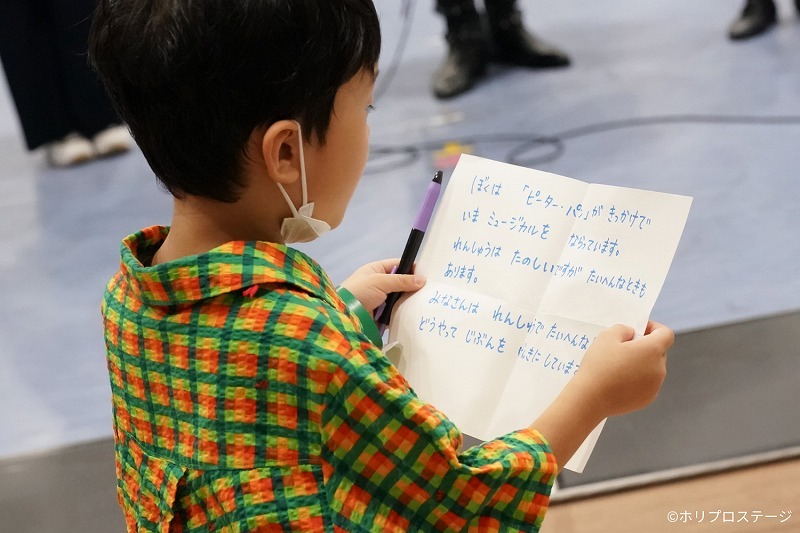 ぼくは 「ピーター・パン」が きっかけで
いま ミュージカルを ならっています。
れんしゅうは たのしいですが たいへんなときも
あります。
みなさんは れんしゅうで たいへんな
どうやって じぶんを げんきに しています
©ホリプロステージ